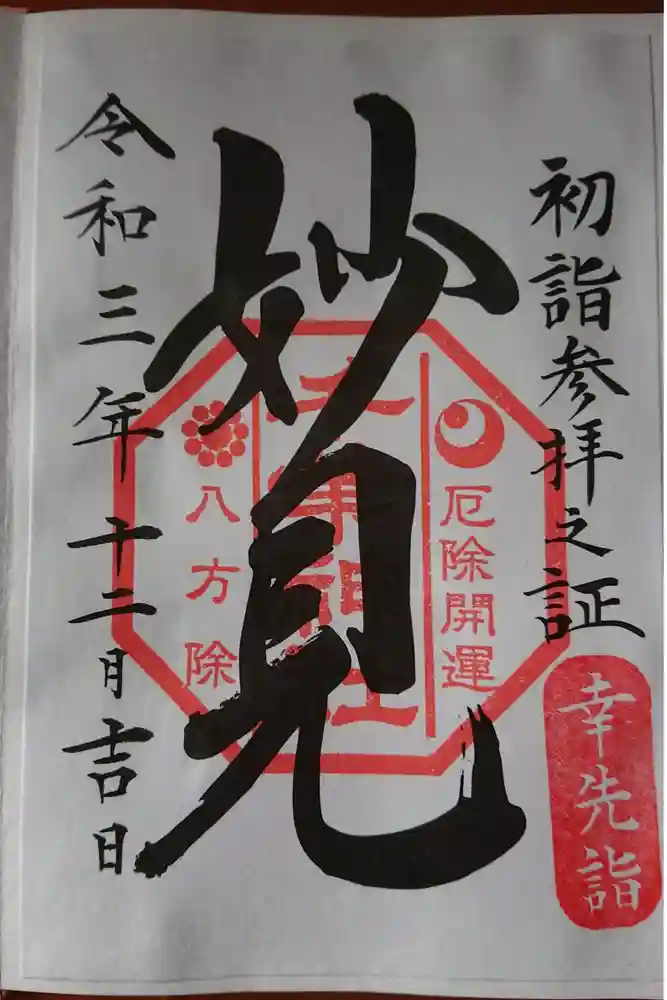 初詣参拝之証
幸先詣
厄除開運
妙見
神社
八方除
令和三年十二月吉日